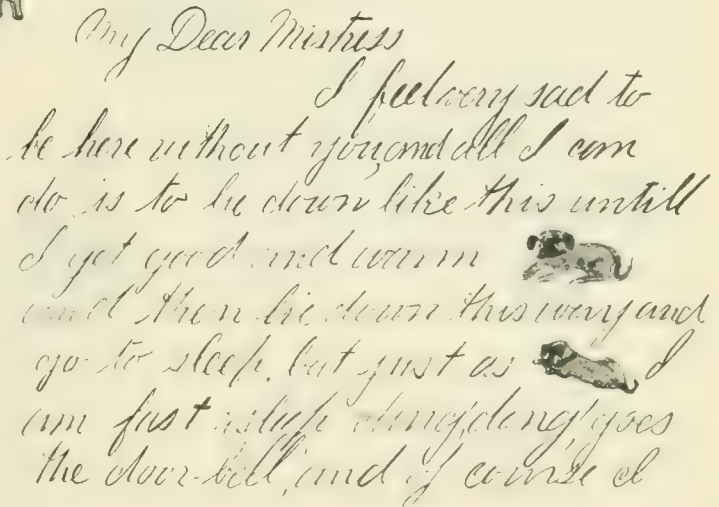 My Dear Mistress
I feel very sad to
be here without you, and all I can
do is to lie down like this untill
I get good and warm
and then lie down this way and
go to sleep, but just as I
am fast asleep ding! dong! goes
the door-bell, and of course I